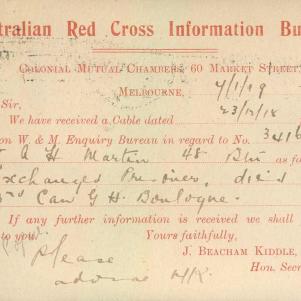 tralian Red Cross Information Bu
Colonial Mutual Chambers, 60 Market Street
Melbourne, 7/1/19
Sir, 23/12/18
We have received a Cable dated
on W. & M. Enquiry Bureau in regard to No. 3416
A H Martin 48 Btn as fo
Exchanged Prisoner, died
3rd Can G H Boulogne.
If any further information is received we shall
to you. Yours faithfully,
Please J. BEACHAM KIDDLE,
advise Hon. Secr